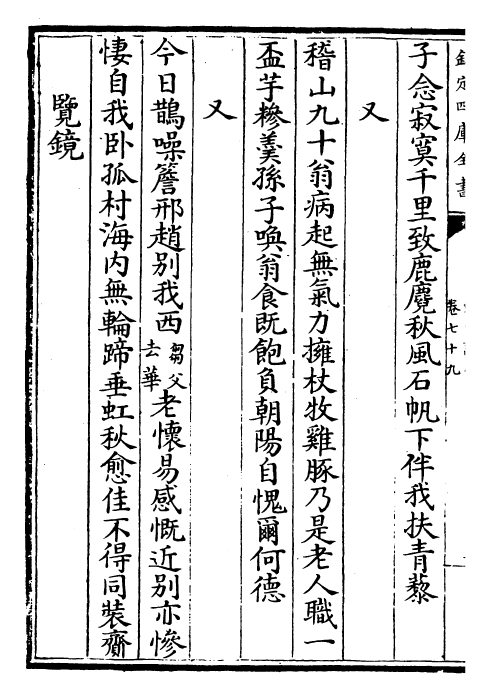 欽定四庫全書
卷七十九
子念寂寞千里致鹿麑秋風石帆下伴我扶青藜
又
稽山九十翁病起無氣力擁杖牧雞豚乃是老人職一
盃芋糝羮孫子喚翁食既飽負朝陽自愧爾何德
又
今日鵲噪簷邢趙别我西芻父去華老懷易感慨近别亦慘
悽自我卧孤村海内無輪蹄垂虹秋愈佳不得同裝齎
覽鏡